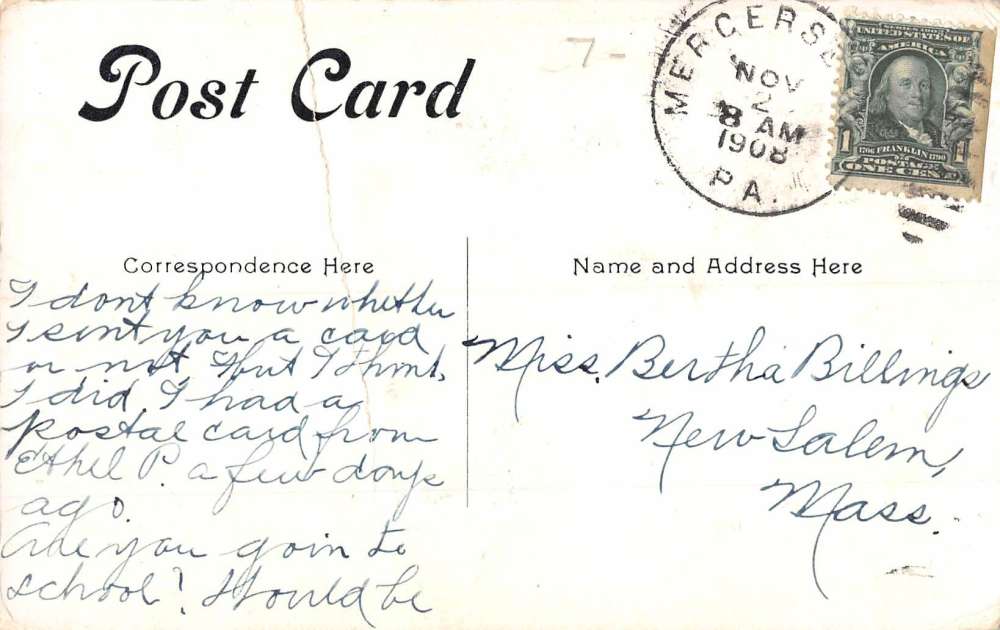 Post Card
7-
MERCERSB
NOV
2
8 AM
1908
PA.
SERIES 1902
UNITED STATES OF
AMERICA
1 1706 FRANKLIN 1790 1
POSTAGE
ONE CENT
Correspondence Here
I dont know whether
I sent you a card
or not but I think
I did. I had a
postal card from
Ethel P. a few days
ago.
Are you goin to
school? Would be
Name and Address Here
Miss. Bertha Billings
New Salem,
Mass.